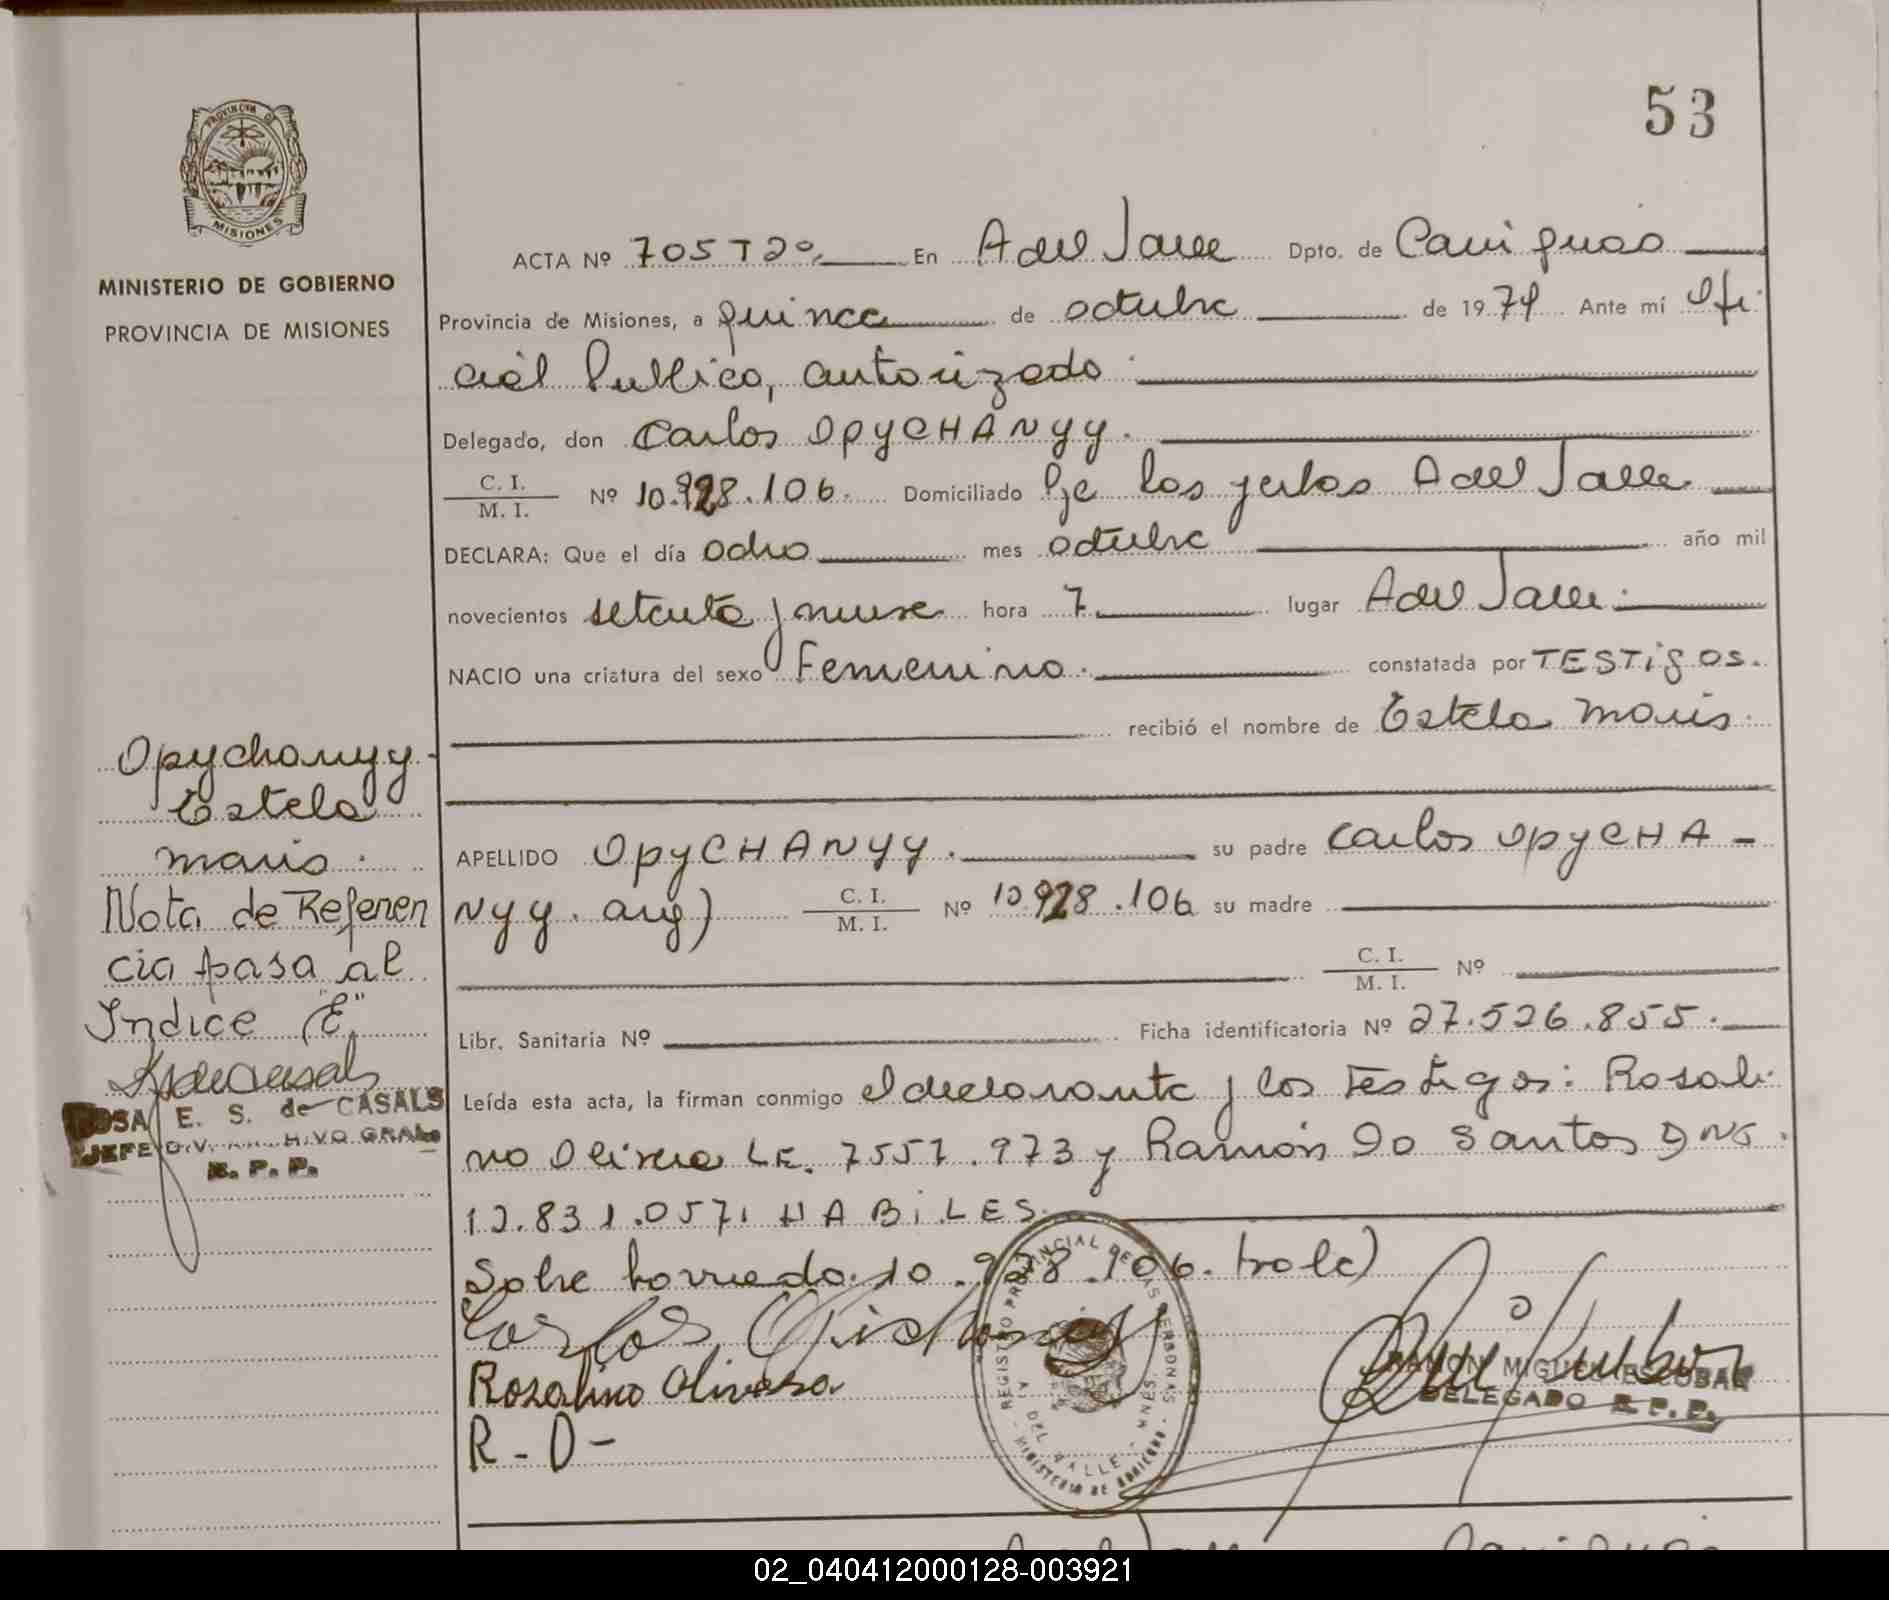 53
PROVINCIA DE
MISIONES
MINISTERIO DE GOBIERNO
PROVINCIA DE MISIONES
ACTA Nº 705 T 2º En A del Valle Dpto. de Cainguas
Provincia de Misiones, a quince de octubre de 1979 Ante mí Ofi
cial Publico, autorizado
Delegado, don Carlos OpyCHANyy.
C. I. / M. I. Nº 10.928.106. Domiciliado Pje los yerbas A del Valle
DECLARA: Que el día ocho mes octubre año mil
novecientos setenta y nueve hora 7 lugar A del Valle.
NACIO una criatura del sexo Femenino. constatada por TESTigos.
recibió el nombre de Estela maris.
Opychanyy.
Estela
maris.
Nota de Referen
cia pasa al
Indice "E"
ROSA E. S. de CASALS
JEFE DIV. ARCHIVO GRAL.
R. P. P.
APELLIDO OpyCHANyy. su padre Carlos OpyCHA-
Nyy. arg) C. I. / M. I. Nº 10.928.106 su madre
C. I. / M. I. Nº
Libr. Sanitaria Nº Ficha identificatoria Nº 27.526.855.
Leída esta acta, la firman conmigo el declarante y los Testigos: Rosali
no Olivera L.E. 7557.973 y Ramón Do Santos DNI.
12.831.057. HABiLES.
Sobre borrado. 10.928.106. vale)
Carlos
Rosalino Olivera
R-D-
REGISTRO PROVINCIAL DE LAS PERSONAS
A DEL VALLE - MNES.
MINISTERIO DE GOBIERNO
RAMON MIGUEL ESCOBAR
DELEGADO R. P. P.
02_040412000128-003921